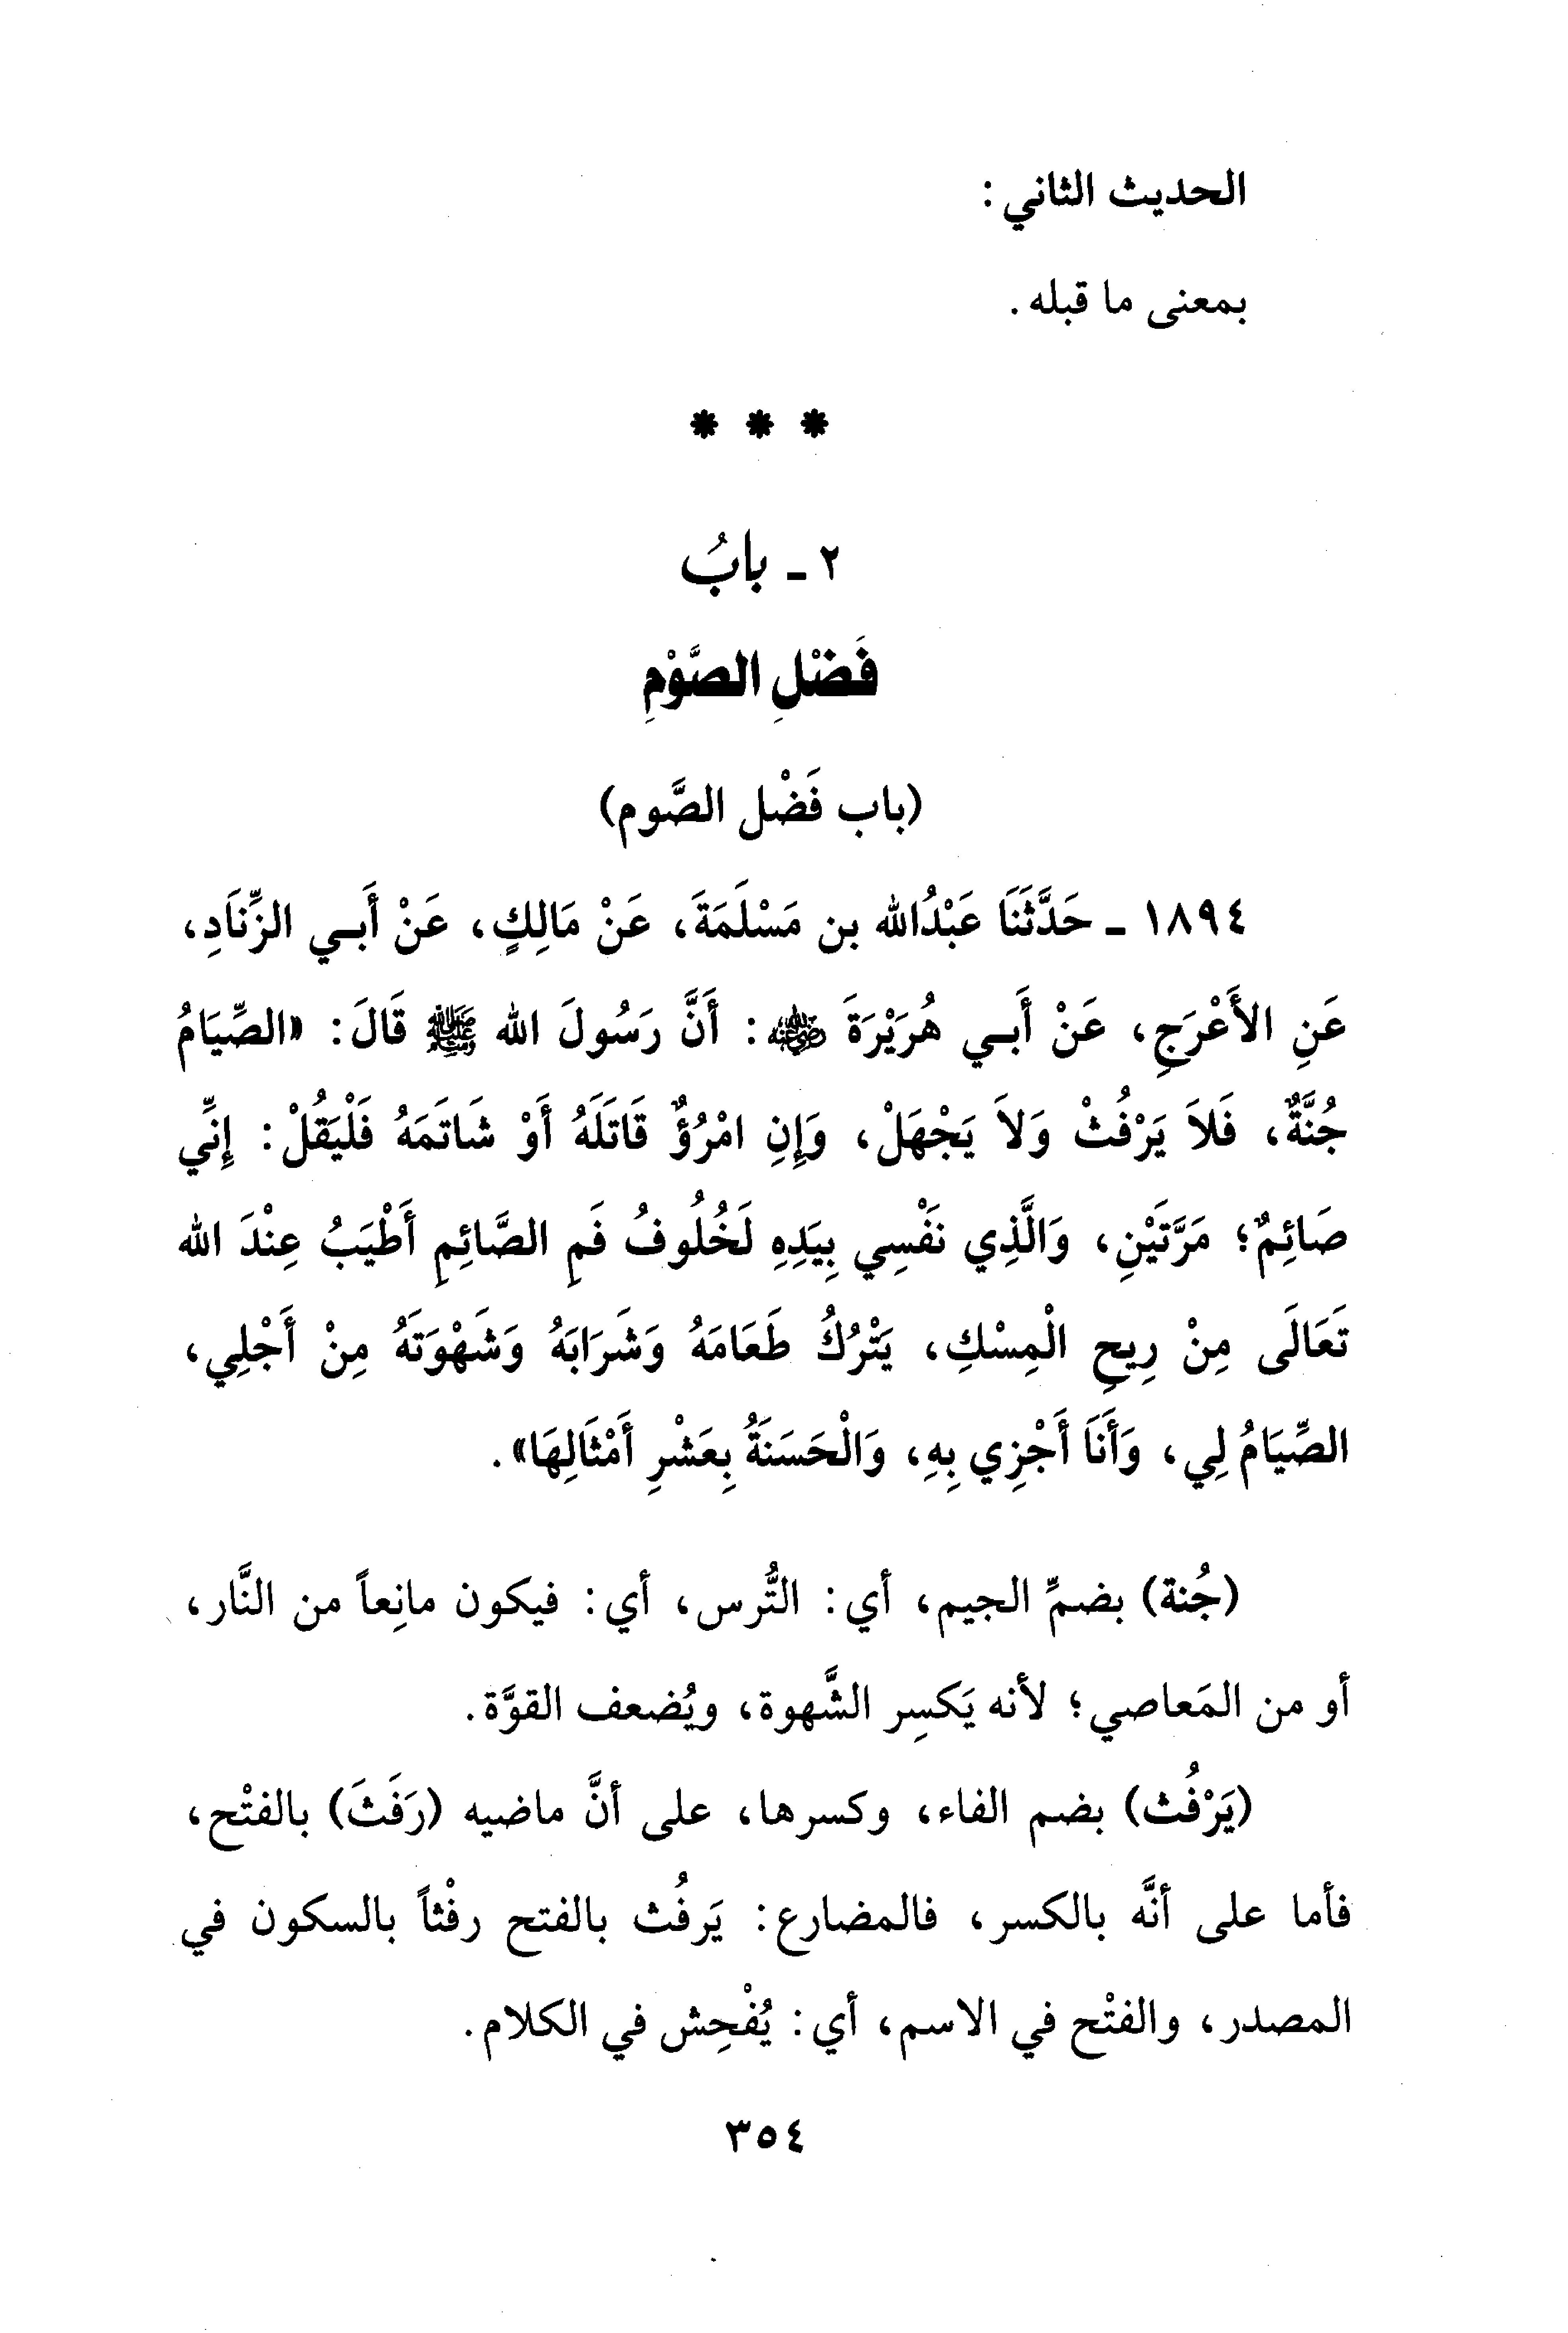 الحديث الثاني:
بمعنى ما قبله.
* * *
٢ - بابُ
فَضْلِ الصَّوْمِ
(باب فَضْل الصَّوم)
١٨٩٤ - حَدَّثَنَا عَبْدُالله بن مَسْلَمَةَ، عَنْ مَالِكٍ، عَنْ أَبي الزِّنَادِ،
عَنِ الأَعْرَجِ، عَنْ أَبي هُرَيْرَةَ ﵁: أَنَّ رَسُولَ الله ﷺ قَالَ: «الصِّيَامُ
جُنَّةٌ، فَلاَ يَرْفُثْ وَلاَ يَجْهَلْ، وَإِنِ امْرُؤٌ قَاتَلَهُ أَوْ شَاتَمَهُ فَلْيَقُلْ: إِنِّي
صَائِمٌ؛ مَرَّتَيْنِ، وَالَّذِي نَفْسِي بِيَدِهِ لَخُلُوفُ فَمِ الصَّائِمِ أَطْيَبُ عِنْدَ الله
تَعَالَى مِنْ رِيحِ الْمِسْكِ، يَتْرُكُ طَعَامَهُ وَشَرَابَهُ وَشَهْوَتَهُ مِنْ أَجْلِي،
الصِّيَامُ لِي، وَأَنَا أَجْزِي بِهِ، وَالْحَسَنَةُ بِعَشْرِ أَمْثَالِهَا».
(جُنة) بضمِّ الجيم، أي: التُّرس، أي: فيكون مانِعاً من النَّار،
أو من المَعاصي؛ لأنه يَكسِر الشَّهوة، ويُضعف القوَّة.
(يَرْفُث) بضم الفاء، وكسرها، على أنَّ ماضيه (رَفَثَ) بالفتْح،
فأما على أنَّه بالكسر، فالمضارع: يَرفُث بالفتح رفْثاً بالسكون في
المصدر، والفتْح في الاسم، أي: يُفْحِش في الكلام.
٣٥٤